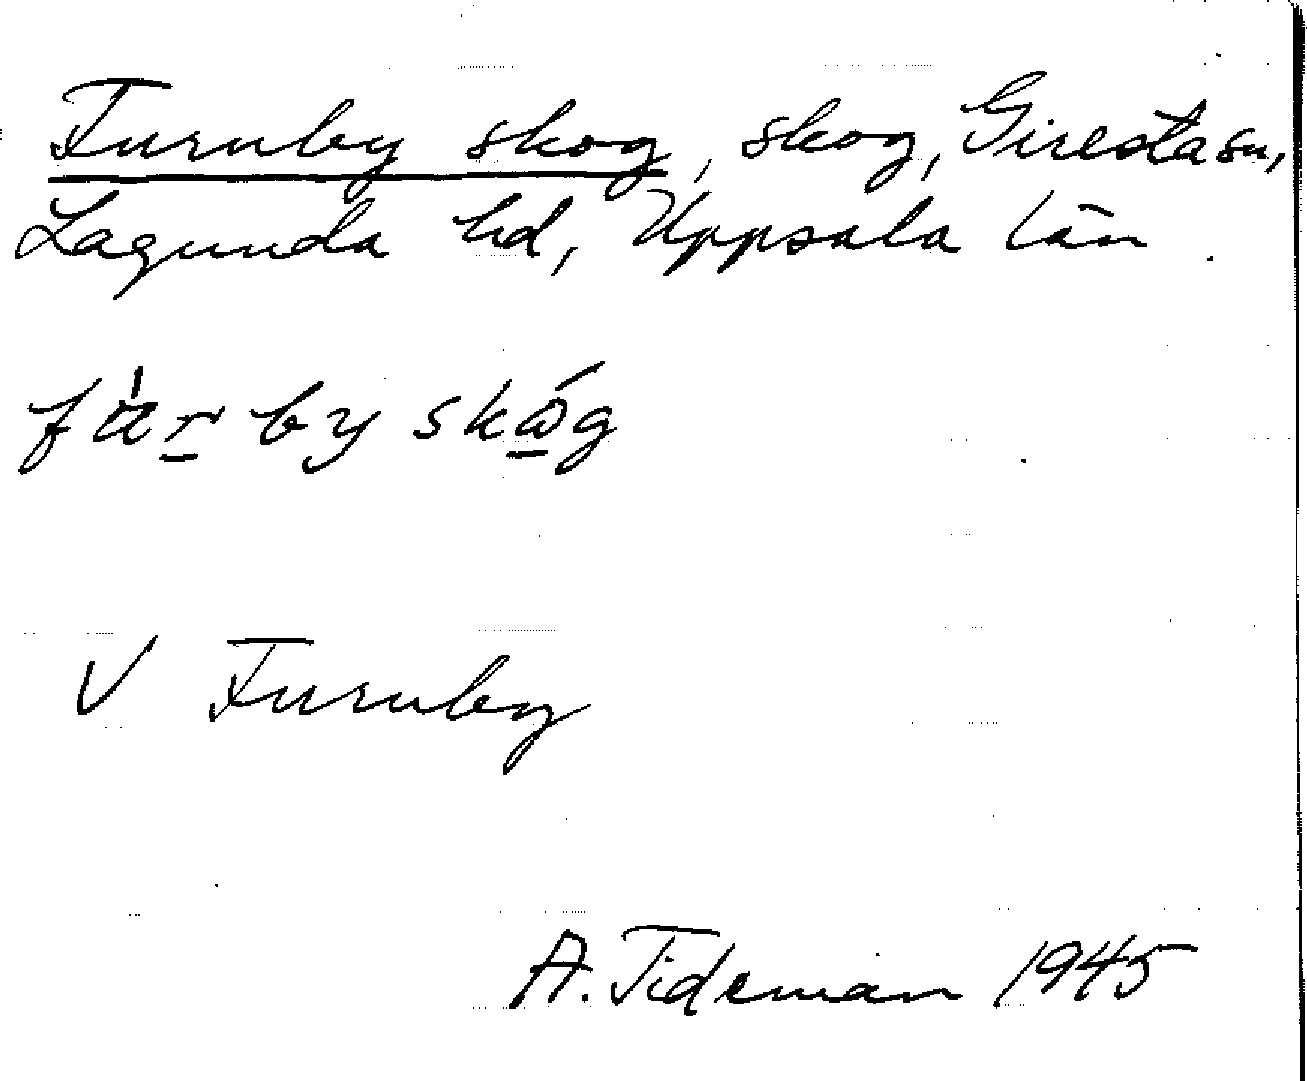 Furuby skog, skog, Giresta sn,
Lagunda hd, Uppsala län
V Furuby
A. Tideman 1945